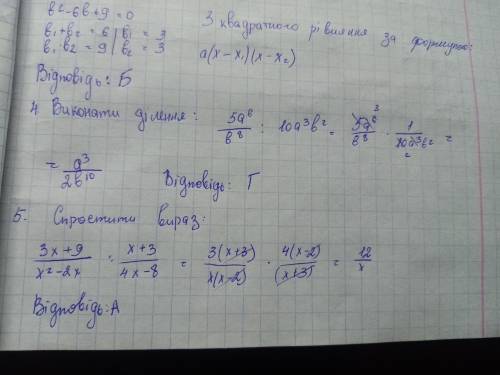 b²-6b+9=0
b₁+b₂ = 6 | b₁ = 3
b₁·b₂ = 9 | b₂ = 3
З квадратного рівняння за формулою:
a(x-x₁)(x-x₂)
Відповідь: Б
4 Виконати ділення: 5a⁶/b⁸ : 10a³b² = 5a⁶/b⁸ · 1/10a³b² =
= a³/2b¹⁰ Відповідь: Г
5. Спростити вираз:
3x+9/x²-2x : x+3/4x-8 = 3(x+3)/x(x-2) · 4(x-2)/(x+3) = 12/x
Відповідь: А